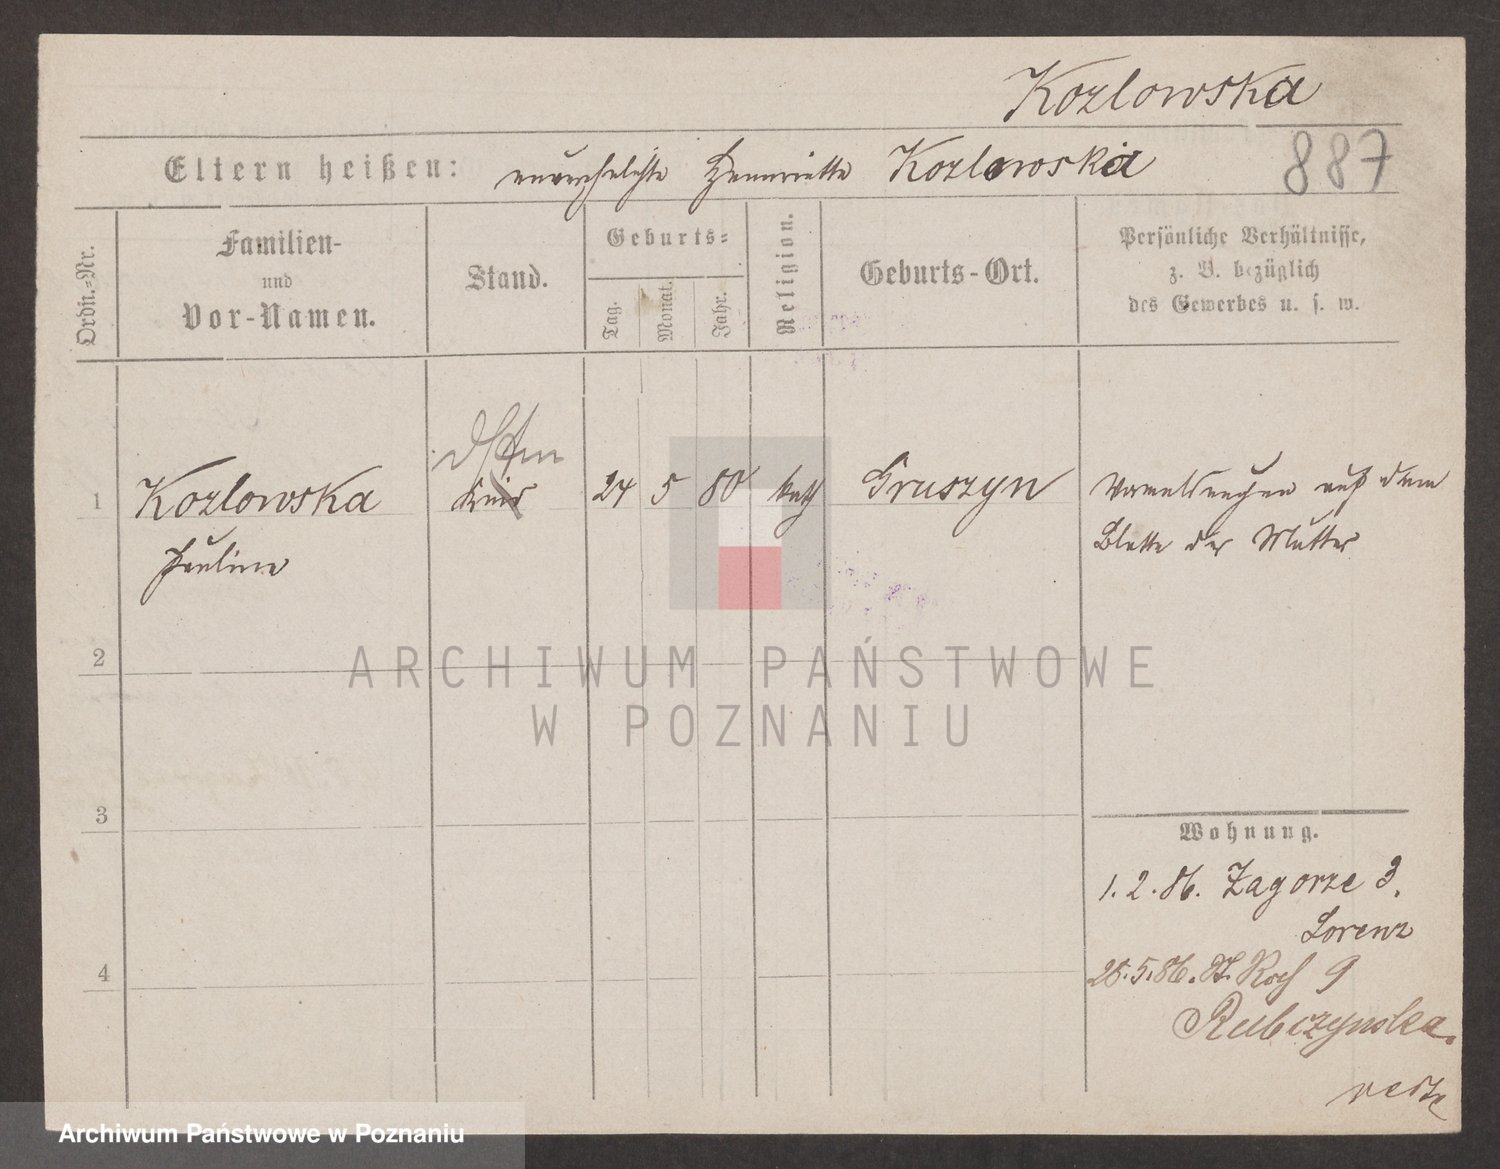 Kozlowska
Eltern heißen: unverehelichte Henriette Kozlowska
887
Ordn.-Nr.
Familien-
und
Vor-Namen.
Stand.
Geburts-
Tag.
Monat.
Jahr.
Religion.
Geburts-Ort.
Persönliche Verhältnisse,
z. B. bezüglich
des Gewerbes u. s. w.
1 Kozlowska Kind 24 5 80 kath Gruszyn auf dem
Pauline Blatte der Mutter
2
3
4
Wohnung.
1. 2. 86. Zagorze 3.
Lorenz
26. 5. 86. St. Roch 9
Rubczynska.
ARCHIWUM PAŃSTWOWE
W POZNANIU
Archiwum Państwowe w Poznaniu